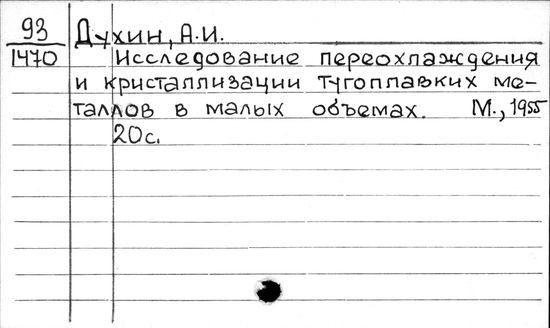 93
1470
Духин, А.И.
Исследование переохлаждения
и кристаллизации тугоплавких ме-
таллов в малых объемах. М., 1955
20с.